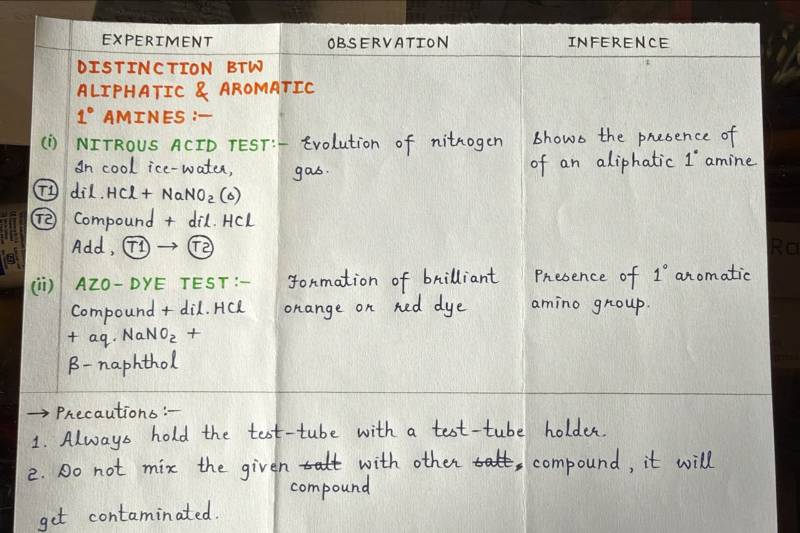 EXPERIMENT OBSERVATION INFERENCE
DISTINCTION BTW
ALIPHATIC & AROMATIC
1° AMINES :—
(i) NITROUS ACID TEST:— Evolution of nitrogen Shows the presence of
In cool ice-water, gas. of an aliphatic 1° amine
T1 dil. HCl + NaNO₂ (s)
T2 Compound + dil. HCl
Add, T1 → T2
(ii) AZO-DYE TEST:— Formation of brilliant Presence of 1° aromatic
Compound + dil. HCl orange or red dye amino group.
+ aq. NaNO₂ +
β-naphthol
→ Precautions :—
1. Always hold the test-tube with a test-tube holder.
2. Do not mix the given salt with other salt, compound, it will
compound
get contaminated.
Ra